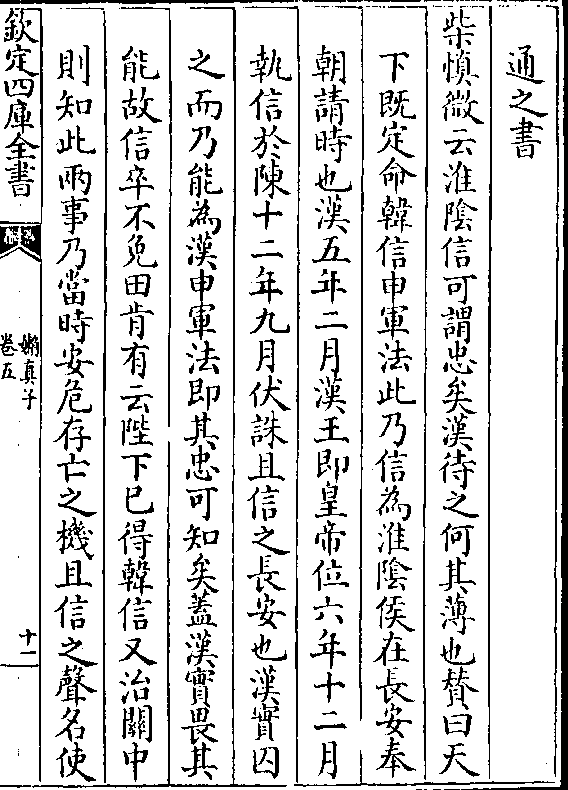 通之書
柴慎微云淮陰信可謂忠矣漢待之何其薄也賛曰天
下既定命韓信申軍法此乃信為淮陰侯在長安奉
朝請時也漢五年二月漢王即皇帝位六年十二月
執信於陳十二年九月伏誅且信之長安也漢實囚
之而乃能為漢申軍法即其忠可知矣蓋漢實畏其
能故信卒不免田肯有云陛下已得韓信又治關中
則知此兩事乃當時安危存亡之機且信之聲名使
欽定四庫全書
嬾真子
卷五
十一